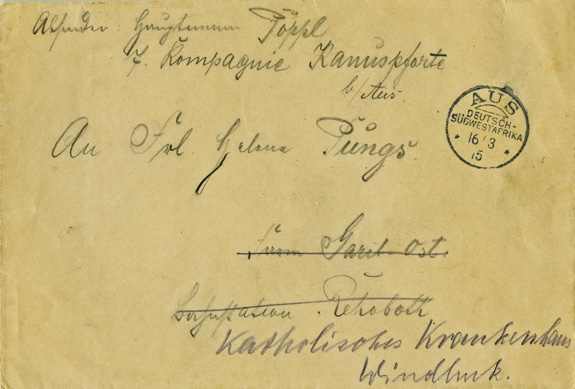 Absender: Hauptmann Töppl
7. Kompagnie Kanuspforte
b/Aus.
AUS
DEUTSCH-
SÜDWESTAFRIKA
* 16/3 *
15
An Frl. Helene Püngs.
Farm Garib-Ost.
Rehoboth
Katholisches Krankenhaus
Windhuk.